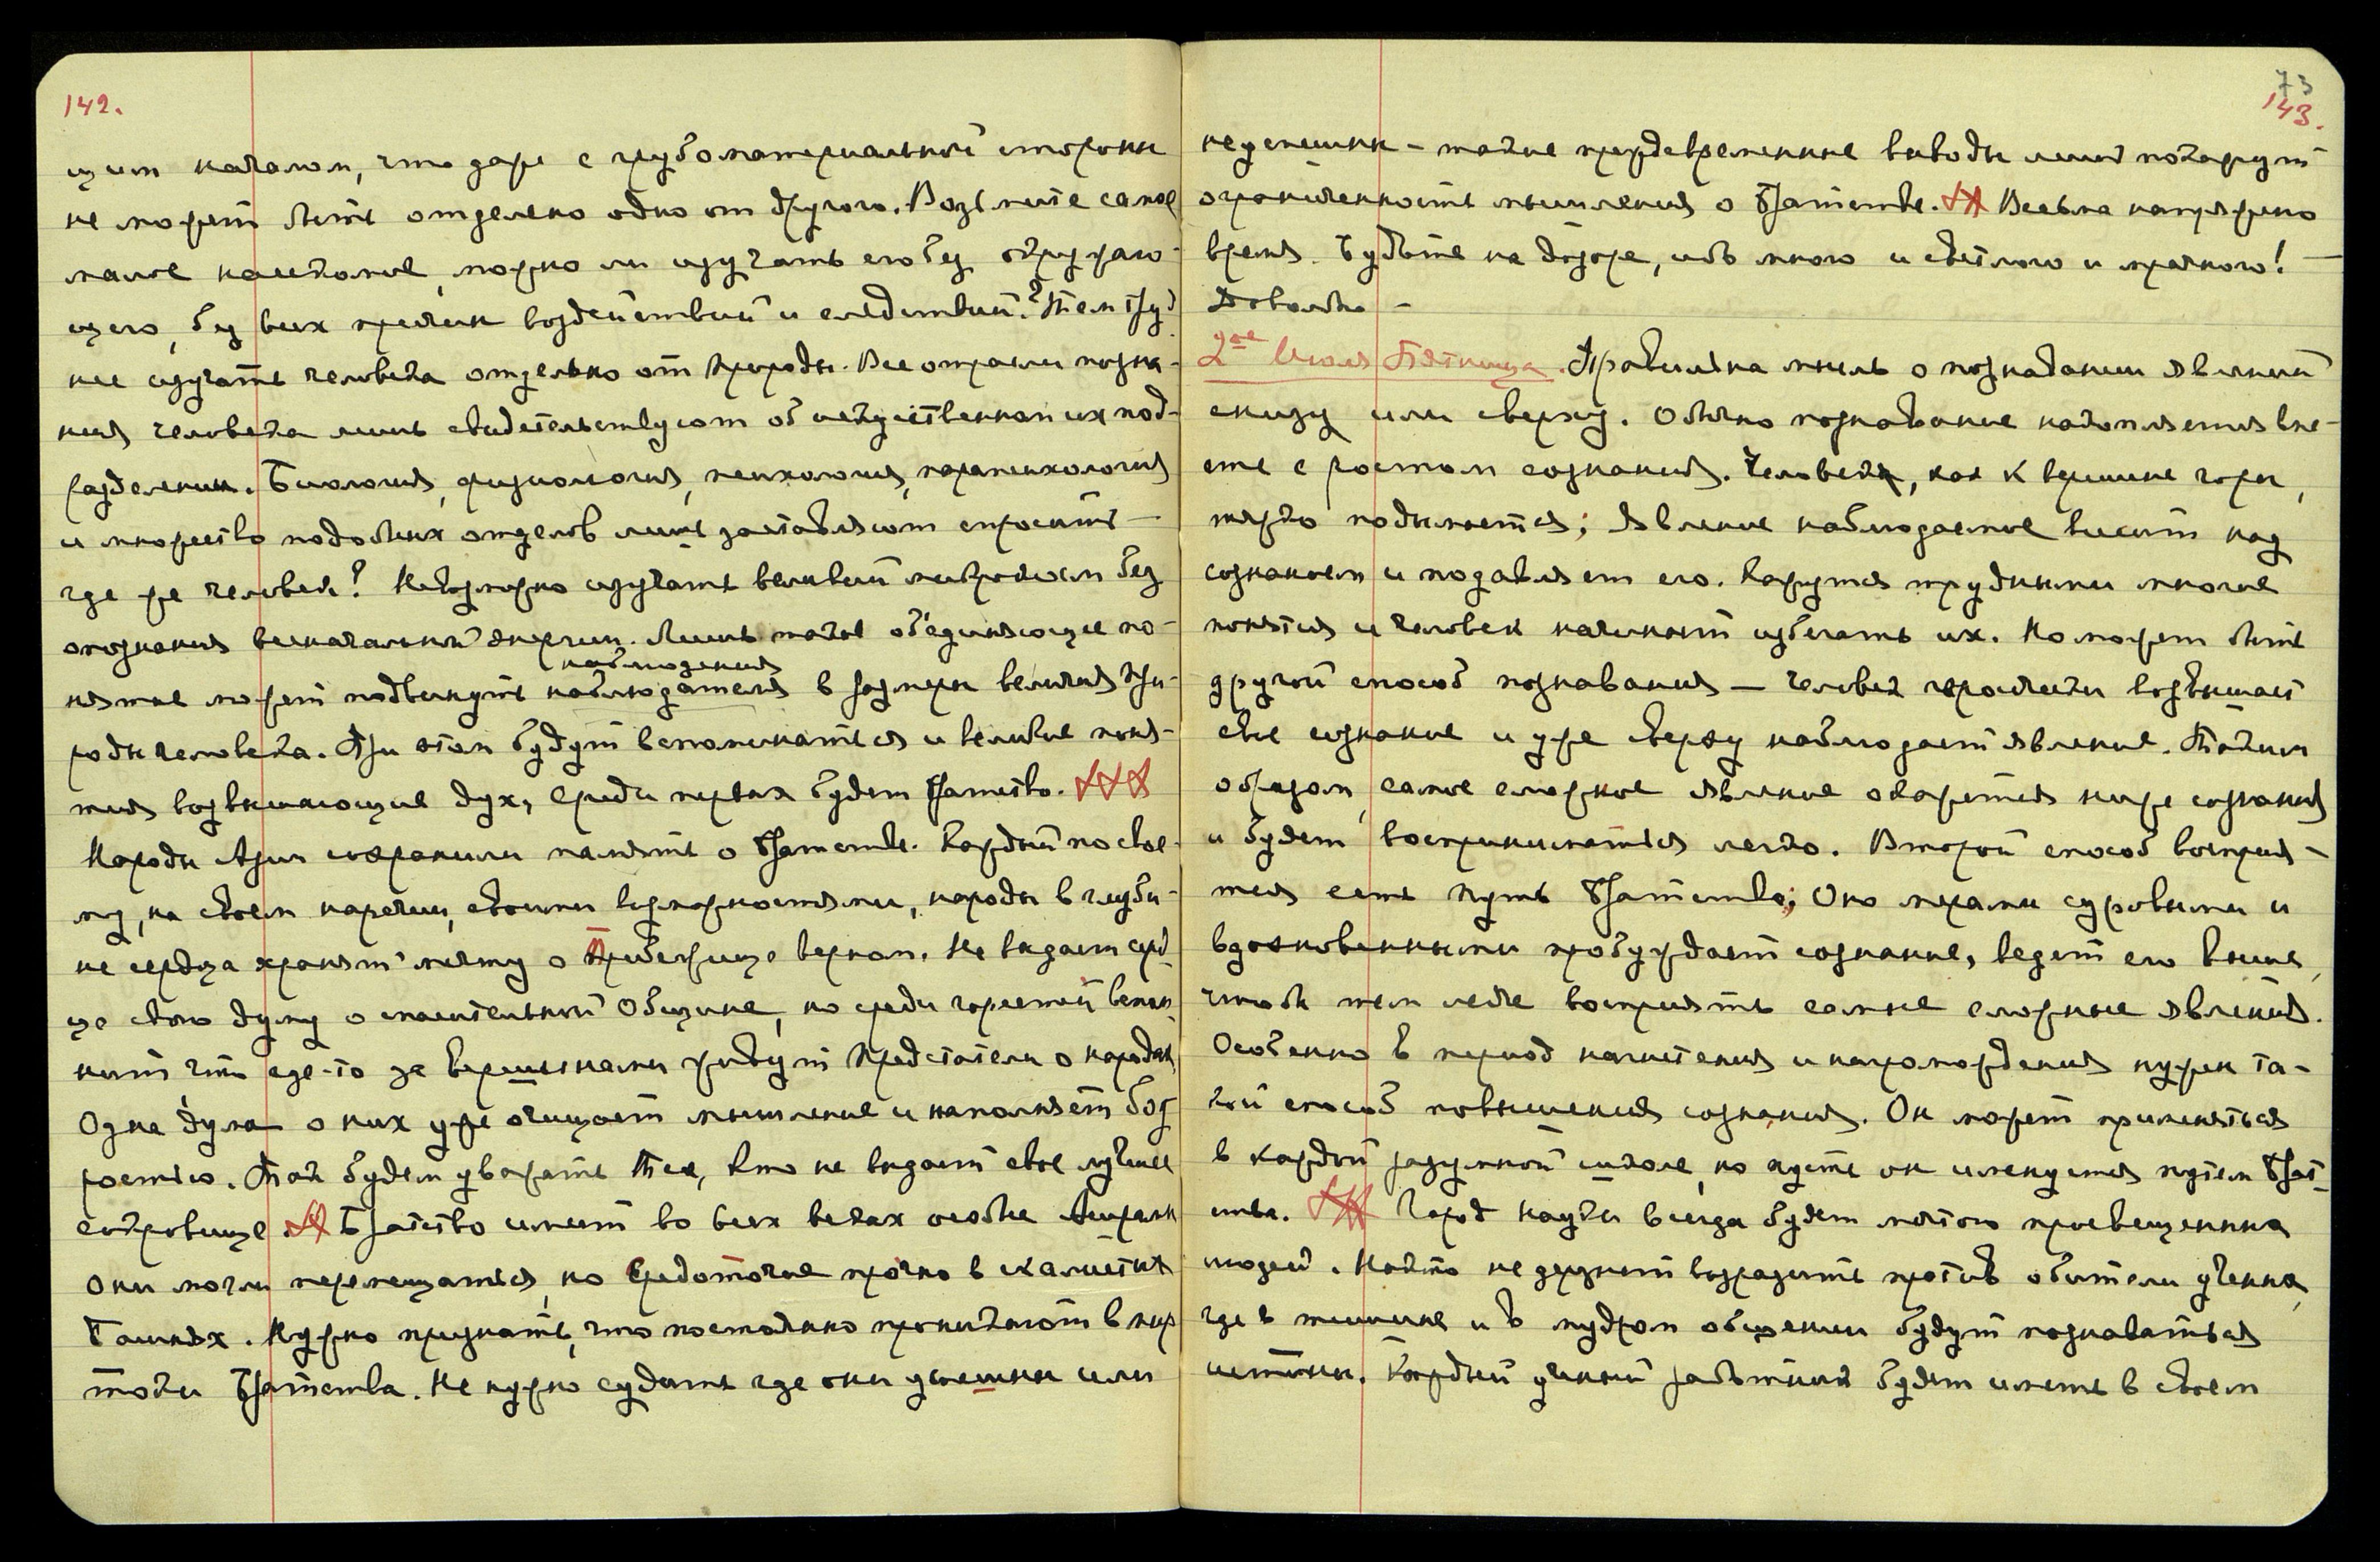 142.
щим началом, что даже с грубоматериальной стороны
не может быть отделено одно от другого. Возьмите самое
малое насекомое, можно ли изучать его без окружаю-
щего, без всех причин воздействий и следствий? Тем труд
нее изучать человека отдельно от природы. Все отрасли позна-
ния человека лишь свидетельствуют об искусственном их под-
разделении. Биология, физиология, психология, парапсихология
и множество подобных отделов лишь заставляют спросить —
где же человек? Невозможно изучать великий микрокосм без
опознания всеначальной энергии. Лишь такое об'единяющее по-
наблюдения
нятие может подвинуть наблюдателя в размеры величия При-
роды человека. При этом будут вспоминаться и великие поня-
тия возвышающие дух, среди первых будет Братство.
Народы Азии сохранили память о Братстве. Каждый по свое-
му, на своем наречии, своими возможностями, народы в глуби-
не сердца хранят мечту о Прибежище верном. Не выдает серд
це свою думу о спасительной Общине, но среди горестей вспом
нит что где-то за вершинами живут Предстатели о народах
Одна дума о них уже очищает мышление и наполняет бод
ростью. Так будем уважать Тех, кто не выдает свое лучшее
сокровище Братство имеет во всех веках особые Ашрамы
Они могли перемещаться, но Средоточие прочно в скалистых
Башнях. Нужно признать, что постоянно проникают в мир
токи Братства. Не нужно судить где они успешны или
73
143.
неуспешны – такие преждевременные выводы лишь покажут
ограниченность мышления о Братстве. Весьма напряжено
время. Будьте на дозоре, ибо много и светлого и мрачного! —
Довольно –
2ое Июля Пятница. Правильна мысль о познавании явлений
снизу или сверху. Обычно познавание накопляется вме-
сте с ростом сознания. Человек, как к вершине горы,
тяжко подымается; явление наблюдаемое висит над
сознанием и подавляет его. Кажутся трудными многие
понятия и человек начинает избегать их. Но может быть
другой способ познавания — человек героически возвышает
свое сознание и уже сверху наблюдает явление. Таким
образом, самое сложное явление окажется ниже сознания
и будет восприниматься легко. Второй способ восприя-
тия есть путь Братства; Оно мерами суровыми и
вдохновенными пробуждает сознание, ведет его выше,
чтобы тем легче воспринять самые сложные явления.
Особенно в период нагнетения и нагромождения нужен та-
кой способ повышения сознания. Он может применяться
в каждой разумной школе, но пусть он именуется путем Брат-
ства. Город Науки всегда будет мечтою просвещенных
людей. Никто не дерзнет возразить против обители ученых,
где в тишине и в мудром общении будут познаваться
истины. Каждый ученый работник будет иметь в своем